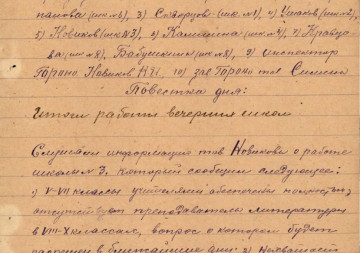 панова (шк.№6), 3) Скворцов (шк.№1), 4) Ушаков (шк.№2)
5) Новиков (шк.№3), 6) Калинина (шк.№4), 7) Правдо-
ва (шк.№8), Бабушкина (шк.№), 9) инспектор
Гороно Новиков Н.И. 10) зав Гороно тов
Повестка дня:
Итоги работы вечерних школ.
Слушали информацию тов Новикова о работе
школы №3, который сообщил следующее:
1) V-VII классы учителями обеспечены полностью,
отсутствует преподаватель литературы
в VIII-X классах, вопрос о котором будет
разрешен в ближайшие дни. 2)